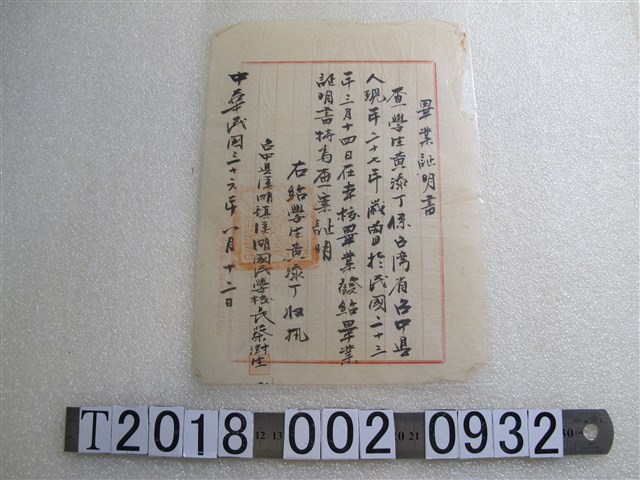 畢業証明書
查學生黃添丁係台湾省台中县
人現年二十七年歲曾於民國二十三
年三月十四日在本校畢業發給畢業
証明書特為查案証明
右給學生黃添丁收执
台中县溪湖鎮溪湖國民學校長蔡澍生
中華民國三十六年八月十二日
T2018 002 0932
12 13
20 21
30